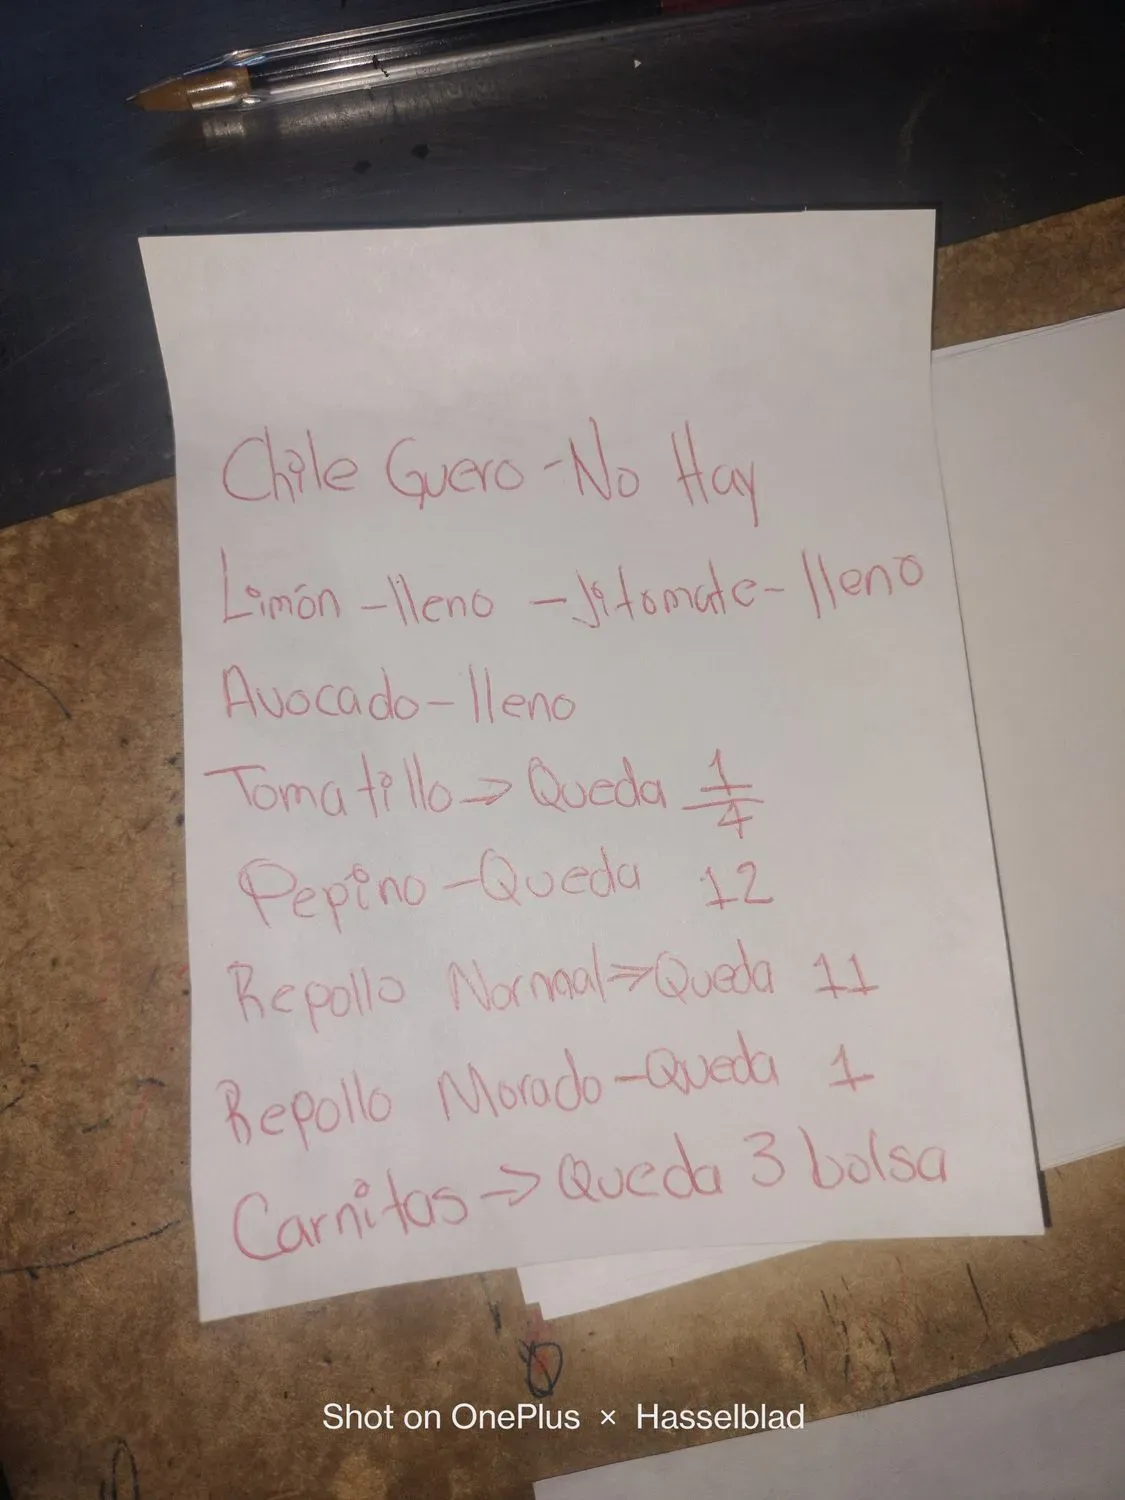 Chile Guero - No Hay
Limón - lleno - Jitomate - lleno
Avocado - lleno
Tomatillo → Queda 1/4
Pepino - Queda 12
Repollo Normal → Queda 11
Repollo Morado - Queda 1
Carnitas → Queda 3 bolsa
Shot on OnePlus × Hasselblad